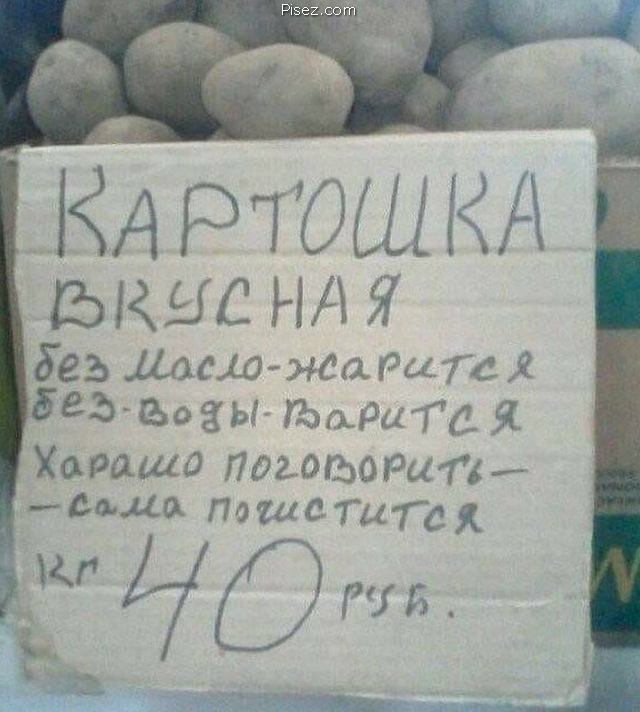 Pisez.com
КАРТОШКА
ВКУСНАЯ
без масло-жарится
без-воды-варится
Харашо поговорить-
-сама почистится
кг 40 руб.